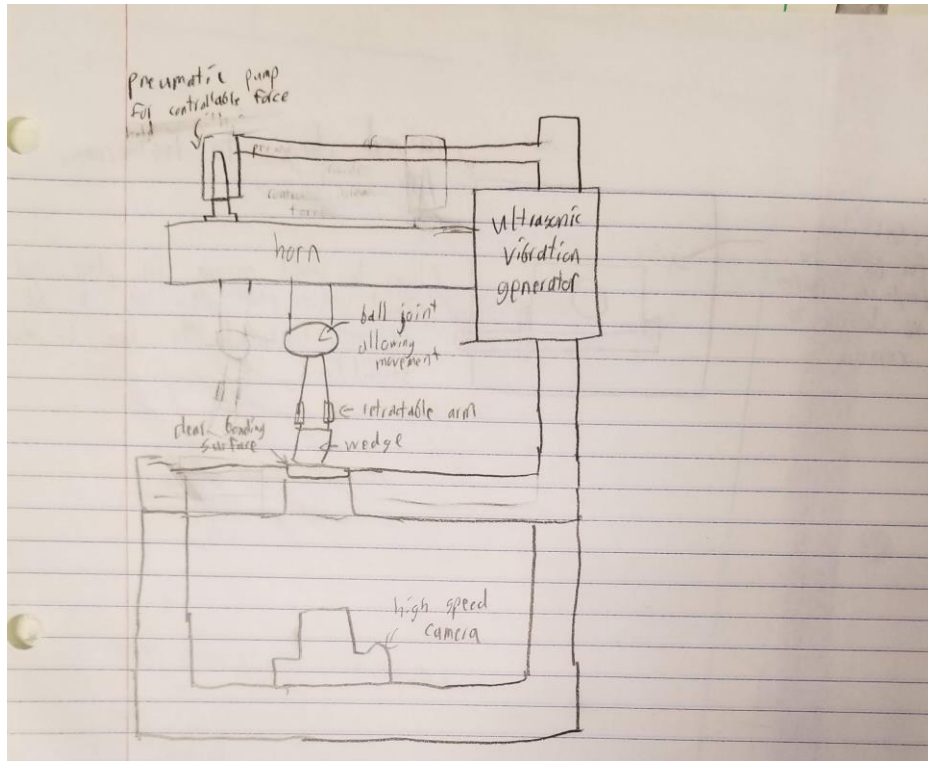 pneumatic pump
for controllable force
horn
ultrasonic
vibration
generator
ball joint
allowing
movement
retractable arm
clear bonding
surface
wedge
high speed
camera